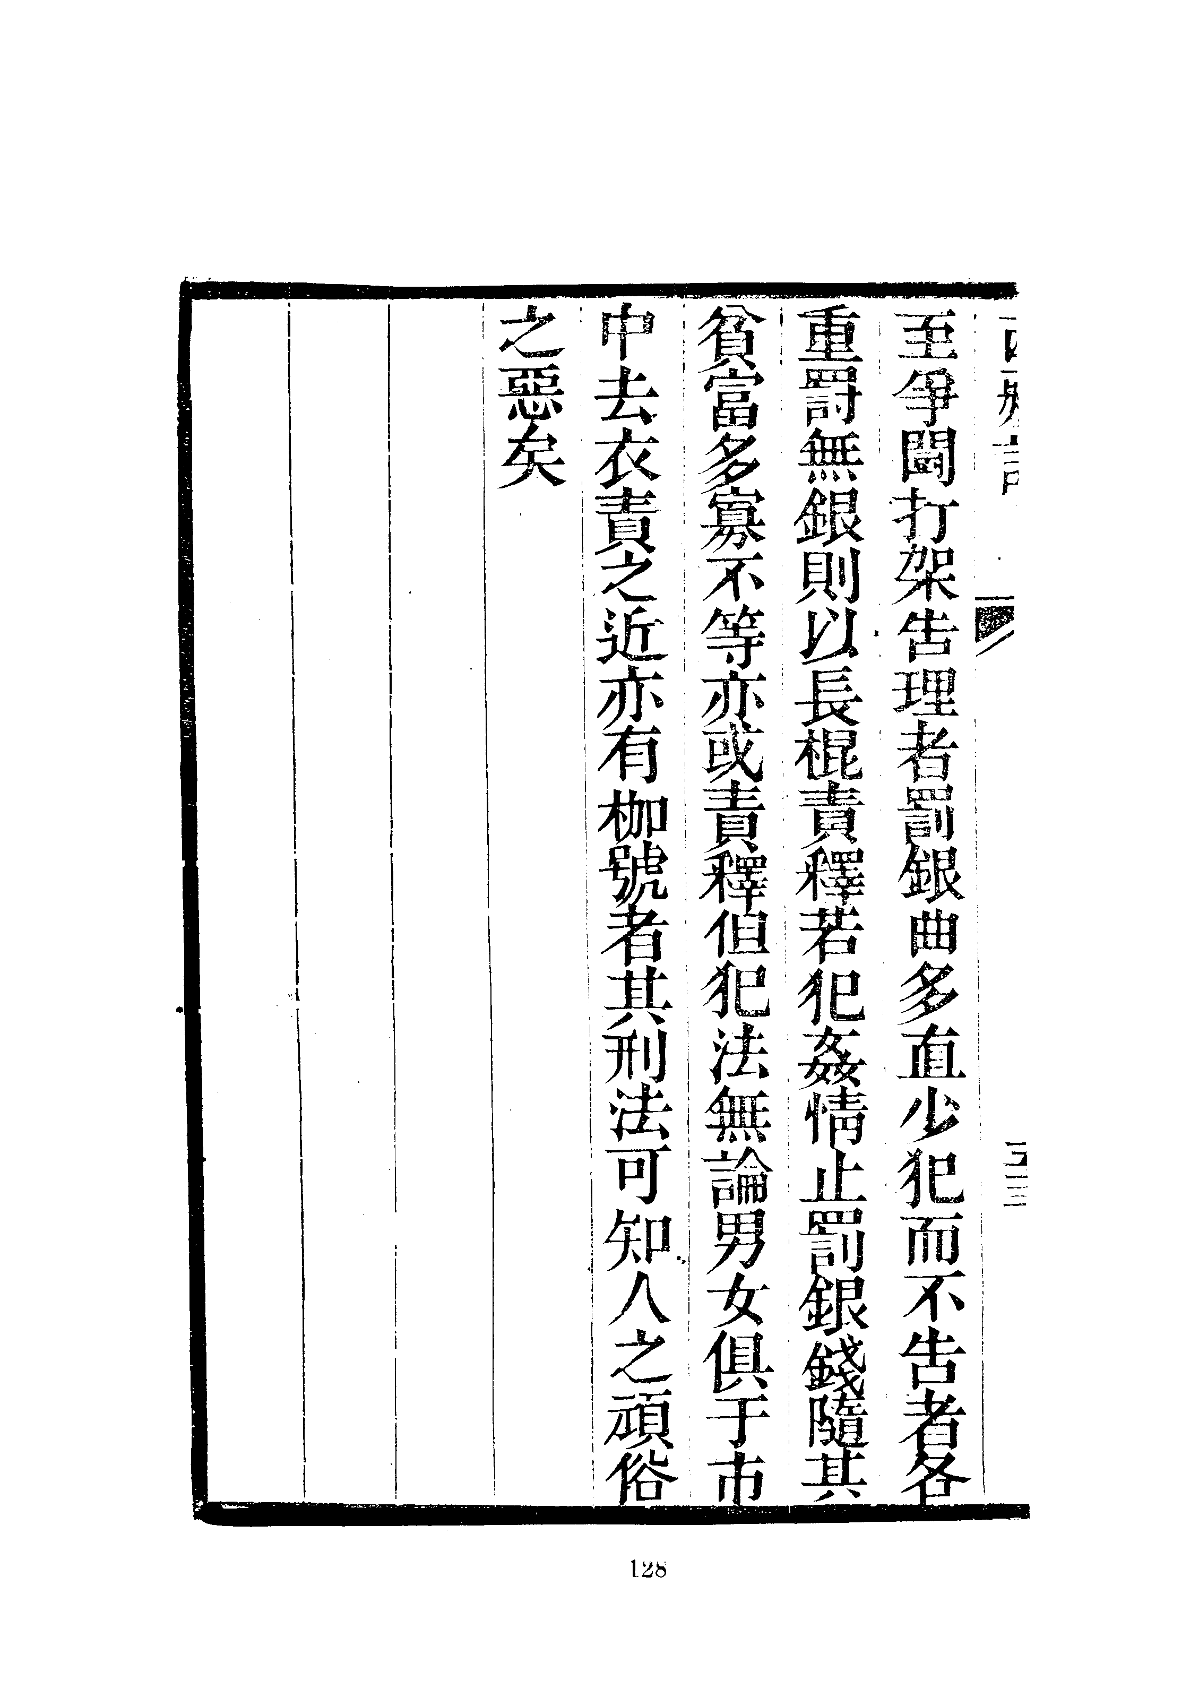 至爭鬪打架告理者罰銀曲多直少犯而不告者各
重罰無銀則以長棍責釋若犯姦情止罰銀錢隨其
貧富多寡不等亦或責釋但犯法無論男女俱于市
中去衣責之近亦有枷號者其刑法可知人之頑俗
之惡矣
128